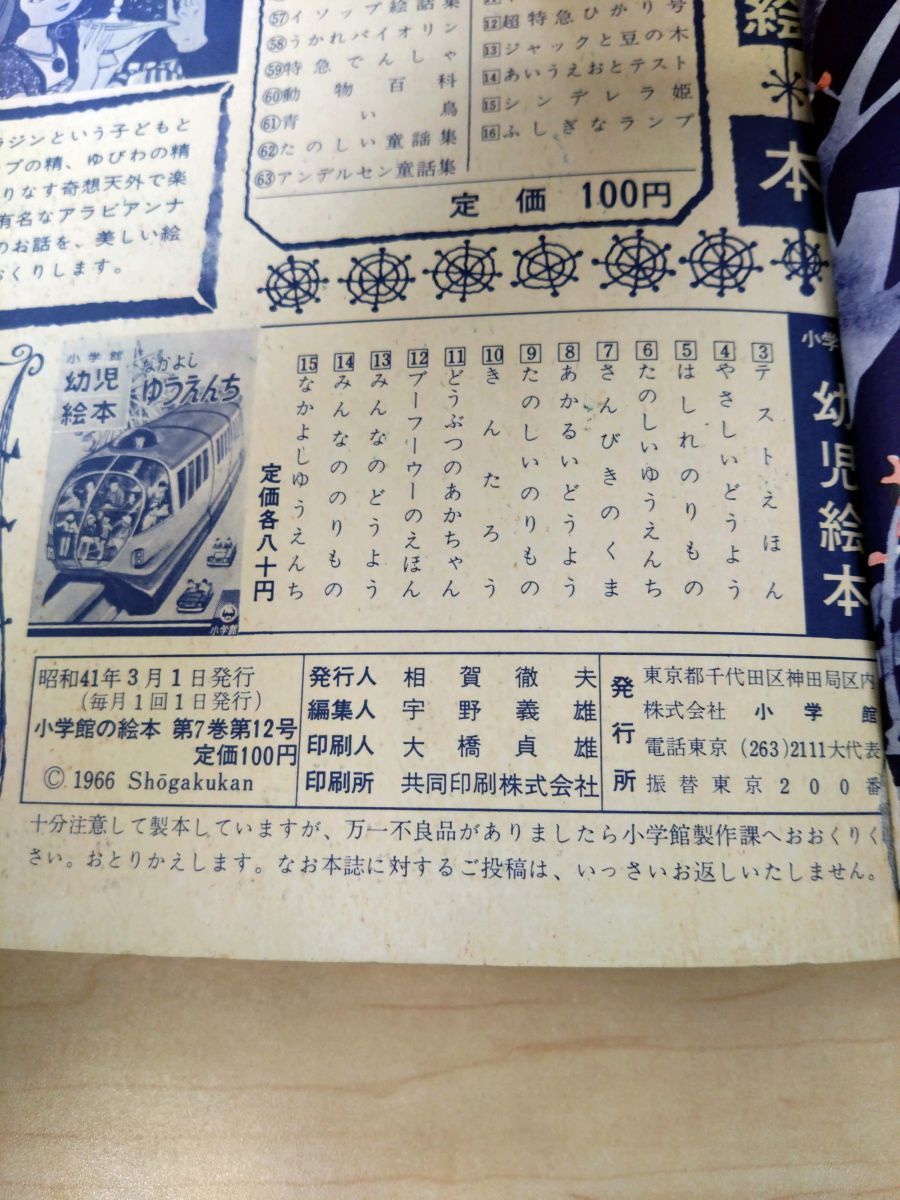 絵
本
㊼イソップ絵話集
㊽うかれバイオリン
㊾特急でんしゃ
㊿動物百科
61青い鳥
62たのしい童謡集
63アンデルセン童話集
12超特急ひかり号
13ジャックと豆の木
14あいうえおとテスト
15シンデレラ姫
16ふしぎなランプ
定価 100円
ラジンという子どもと
プの精、ゆびわの精
りなす奇想天外で楽
有名なアラビアンナ
のお話を、美しい絵
おくりします。
小学
幼児絵本
3テストえほん
4やさしいどうよう
5はしれのりもの
6たのしいゆうえんち
7さんびきのくま
8あかるいどうよう
9たのしいのりもの
10きんたろう
11どうぶつのあかちゃん
12ブーフーウーのえほん
13みんなのどうよう
14みんなののりもの
15なかよしゆうえんち
定価各八十円
小学館
幼児
絵本
なかよし
ゆうえんち
15
小学館
昭和41年3月1日発行
(毎月1回1日発行)
小学館の絵本 第7巻第12号
定価100円
© 1966 Shōgakukan
発行人 相賀徹夫
編集人 宇野義雄
印刷人 大橋貞雄
印刷所 共同印刷株式会社
発行所
東京都千代田区神田局区内
株式会社 小学館
電話東京 (263)2111大代表
振替東京200番
十分注意して製本していますが、万一不良品がありましたら小学館製作課へおおくりく
さい。おとりかえします。なお本誌に対するご投稿は、いっさいお返しいたしません。